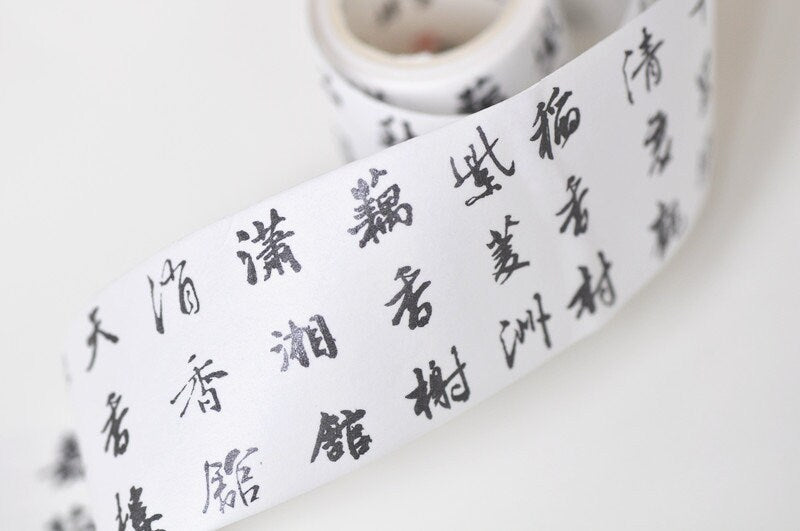 清
稻香村
紫菱洲
藕香榭
瀟湘館
消香館
天香樓